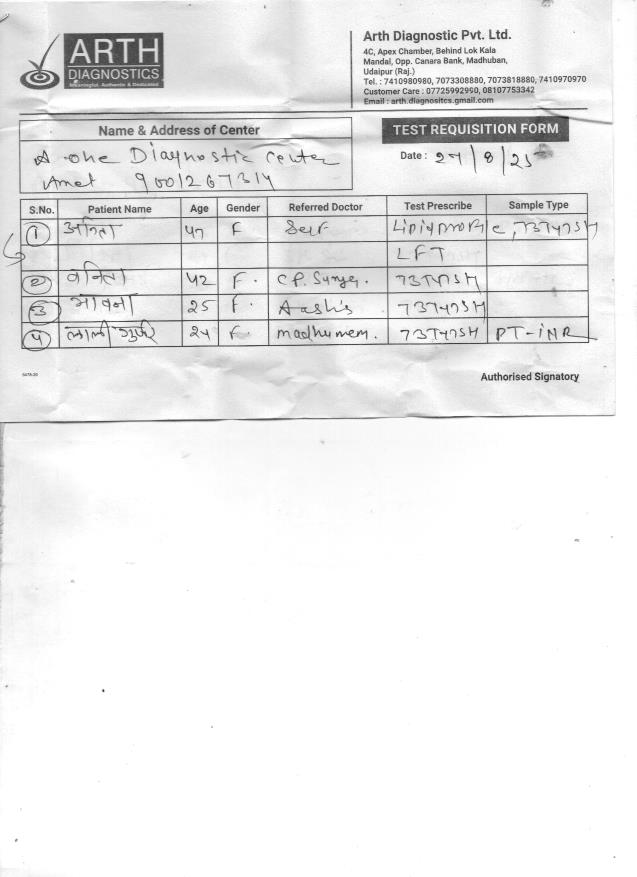 ARTH
DIAGNOSTICS
Meaningful, Authentic & Dedicated
Arth Diagnostic Pvt. Ltd.
4C, Apex Chamber, Behind Lok Kala
Mandal, Opp. Canara Bank, Madhuban,
Udaipur (Raj.)
Tel. : 7410980980, 7073308880, 7073818880, 7410970970
Customer Care : 07725992990, 08107753342
Email : arth.diagnositcs.gmail.com
Name & Address of Center
TEST REQUISITION FORM
A-one Diagnostic Center
Amet 9001267314
Date : 27/8/25
S.No. Patient Name Age Gender Referred Doctor Test Prescribe Sample Type
1 अनिता 47 F Self Lipid profile, T3T4TSH
LFT
2 वनिता 42 F. C.P. T3T4TSH
3 भावना 25 F. T3T4TSH
4 लाली गुर्जर 24 F. T3T4TSH PT-INR
Authorised Signatory